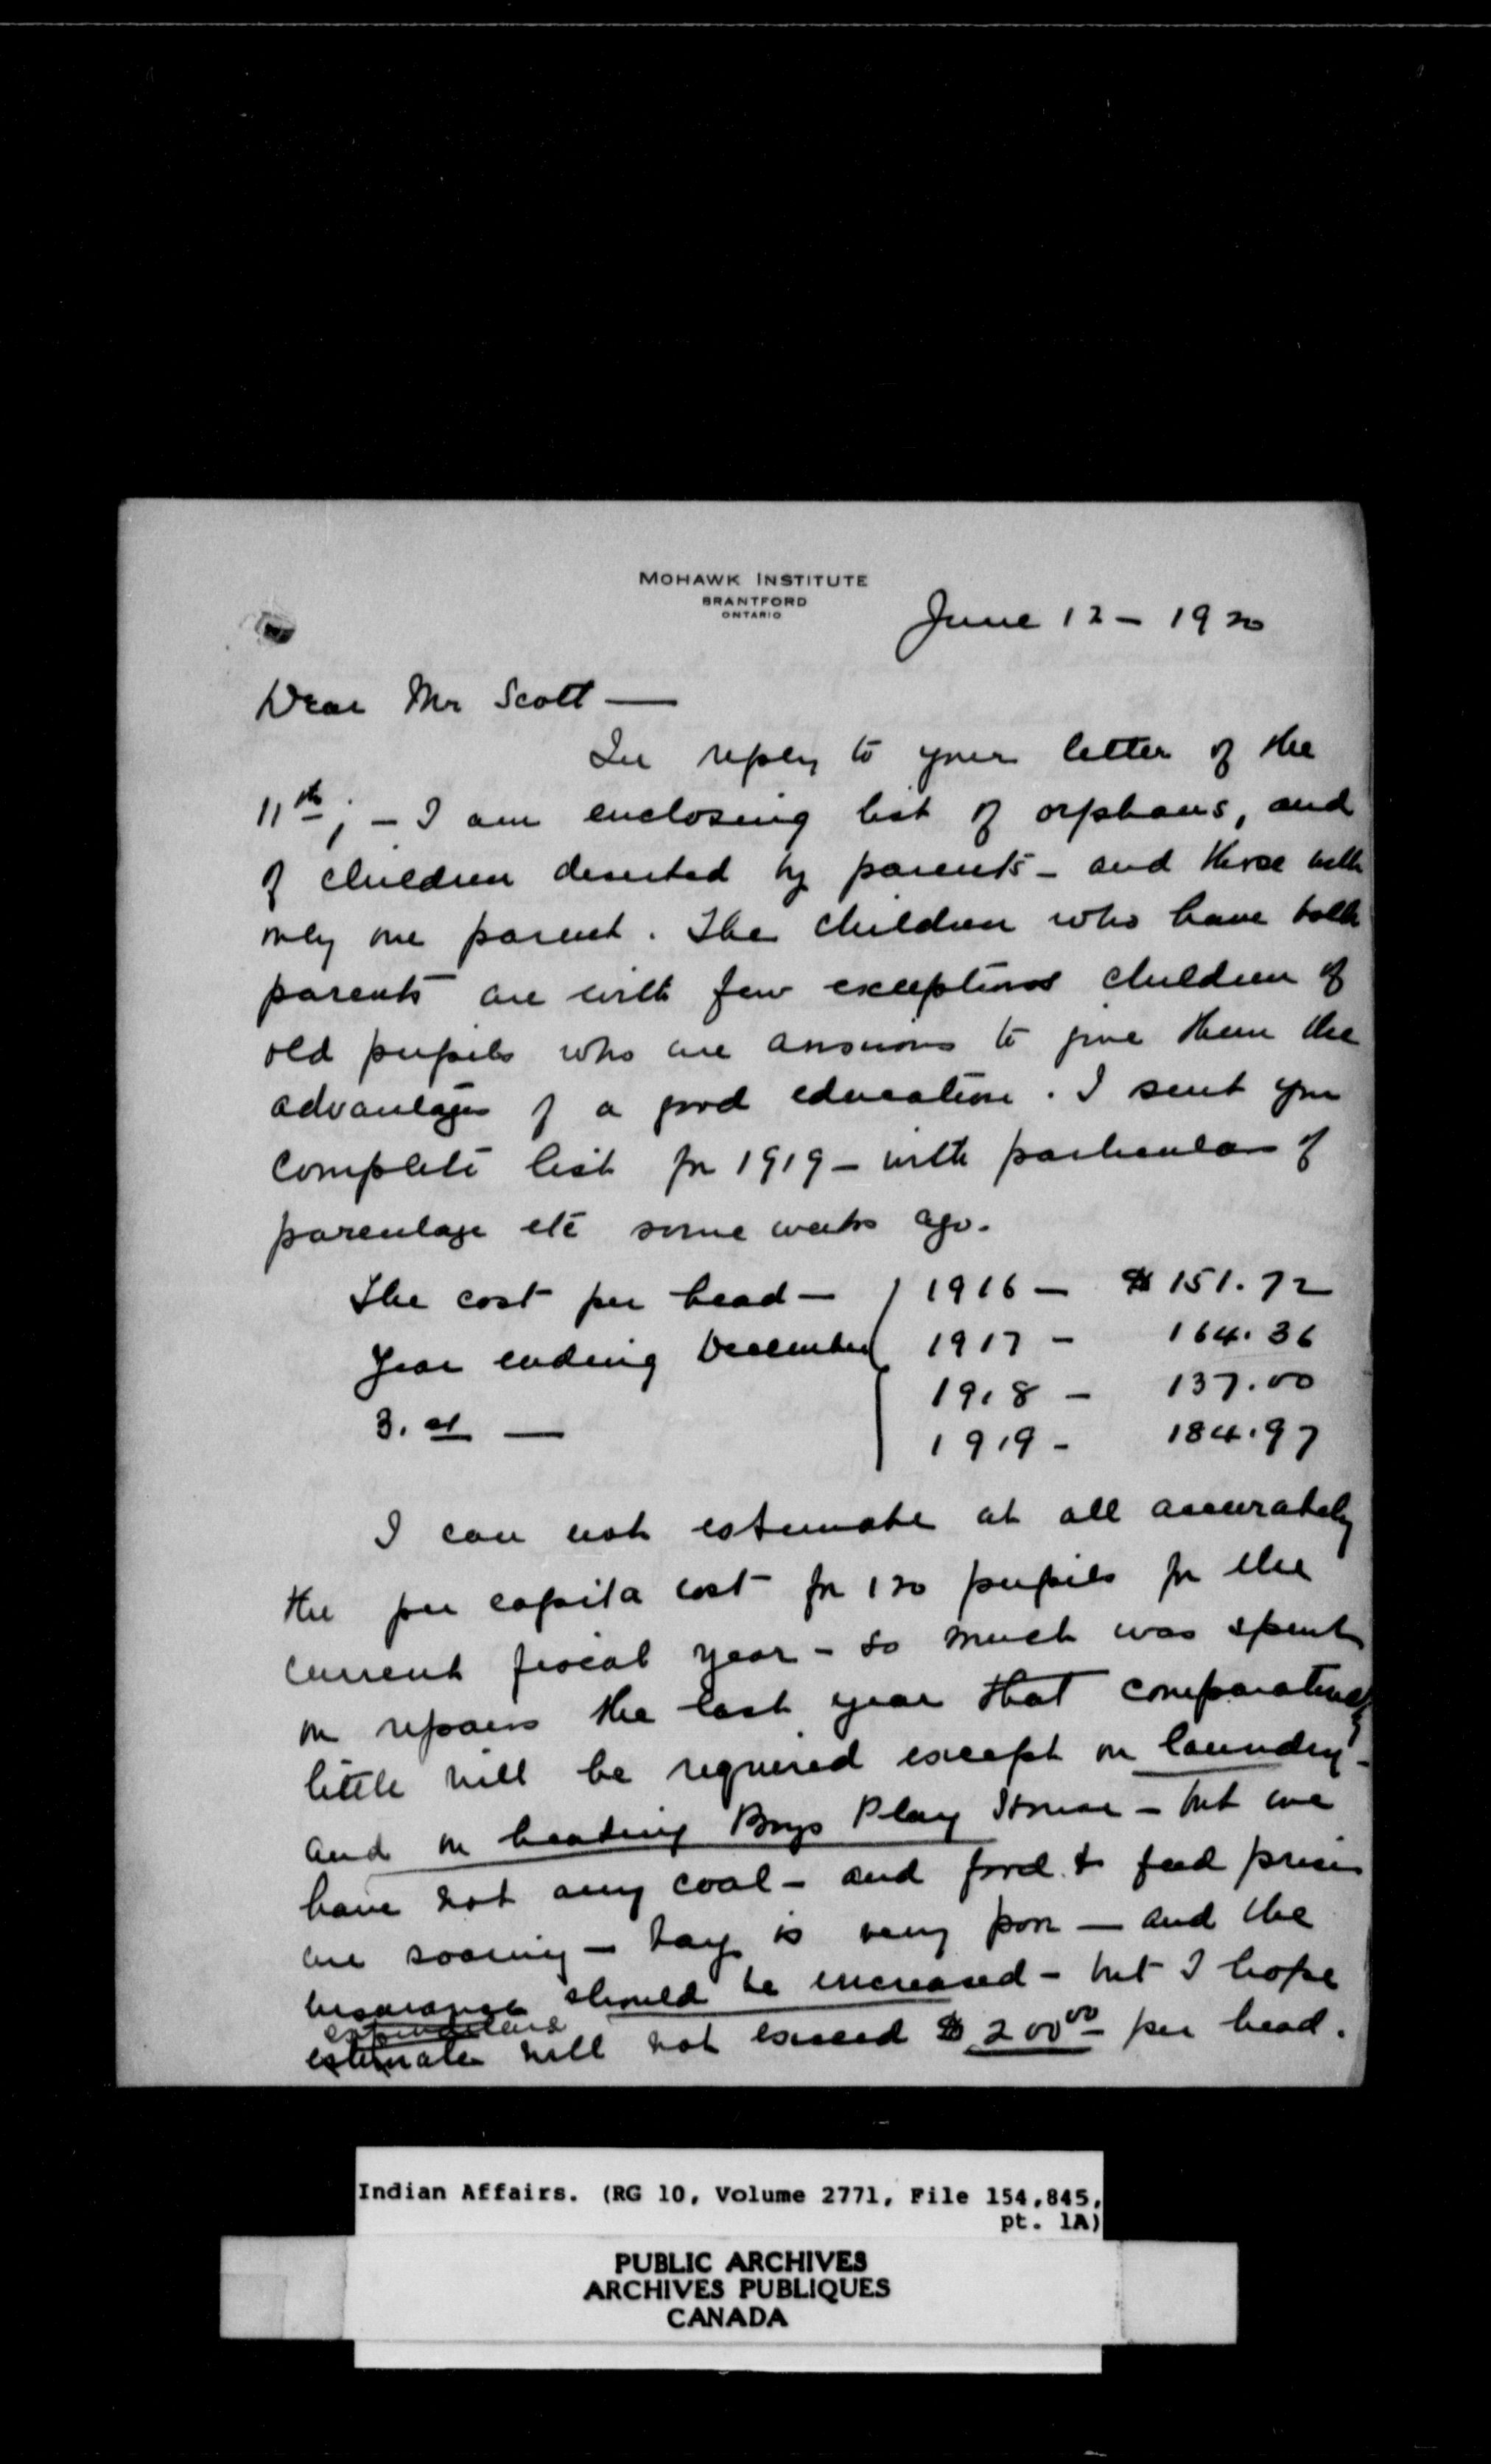 MOHAWK INSTITUTE
BRANTFORD
ONTARIO
June 12 – 1920
Dear Mr Scott —
In reply to your letter of the
11th, – I am enclosing list of orphans, and
of children deserted by parents – and those with
only one parent. The children who have both
parents are with few exceptions children of
old pupils who are anxious to give them the
advantages of a good education. I sent you
complete list for 1919 – with particulars of
parentage etc some weeks ago.
The cost per head – 1916 – $151.72
Year ending December 1917 – 164.36
1918 – 137.00
31st — 1919 – 184.97
I can not estimate at all accurately
the per capita cost for 120 pupils for the
current fiscal year – so much was spent
on repairs the last year that comparatively
little will be required except on laundry –
and on heating Boys Play House – but we
have not any coal – and food & feed prices
are soaring – hay is very poor — and the
insurance should be increased – but I hope
expenditure
estimate will not exceed $200.00 per head.
Indian Affairs. (RG 10, Volume 2771, File 154,845,
pt. 1A)
PUBLIC ARCHIVES
ARCHIVES PUBLIQUES
CANADA